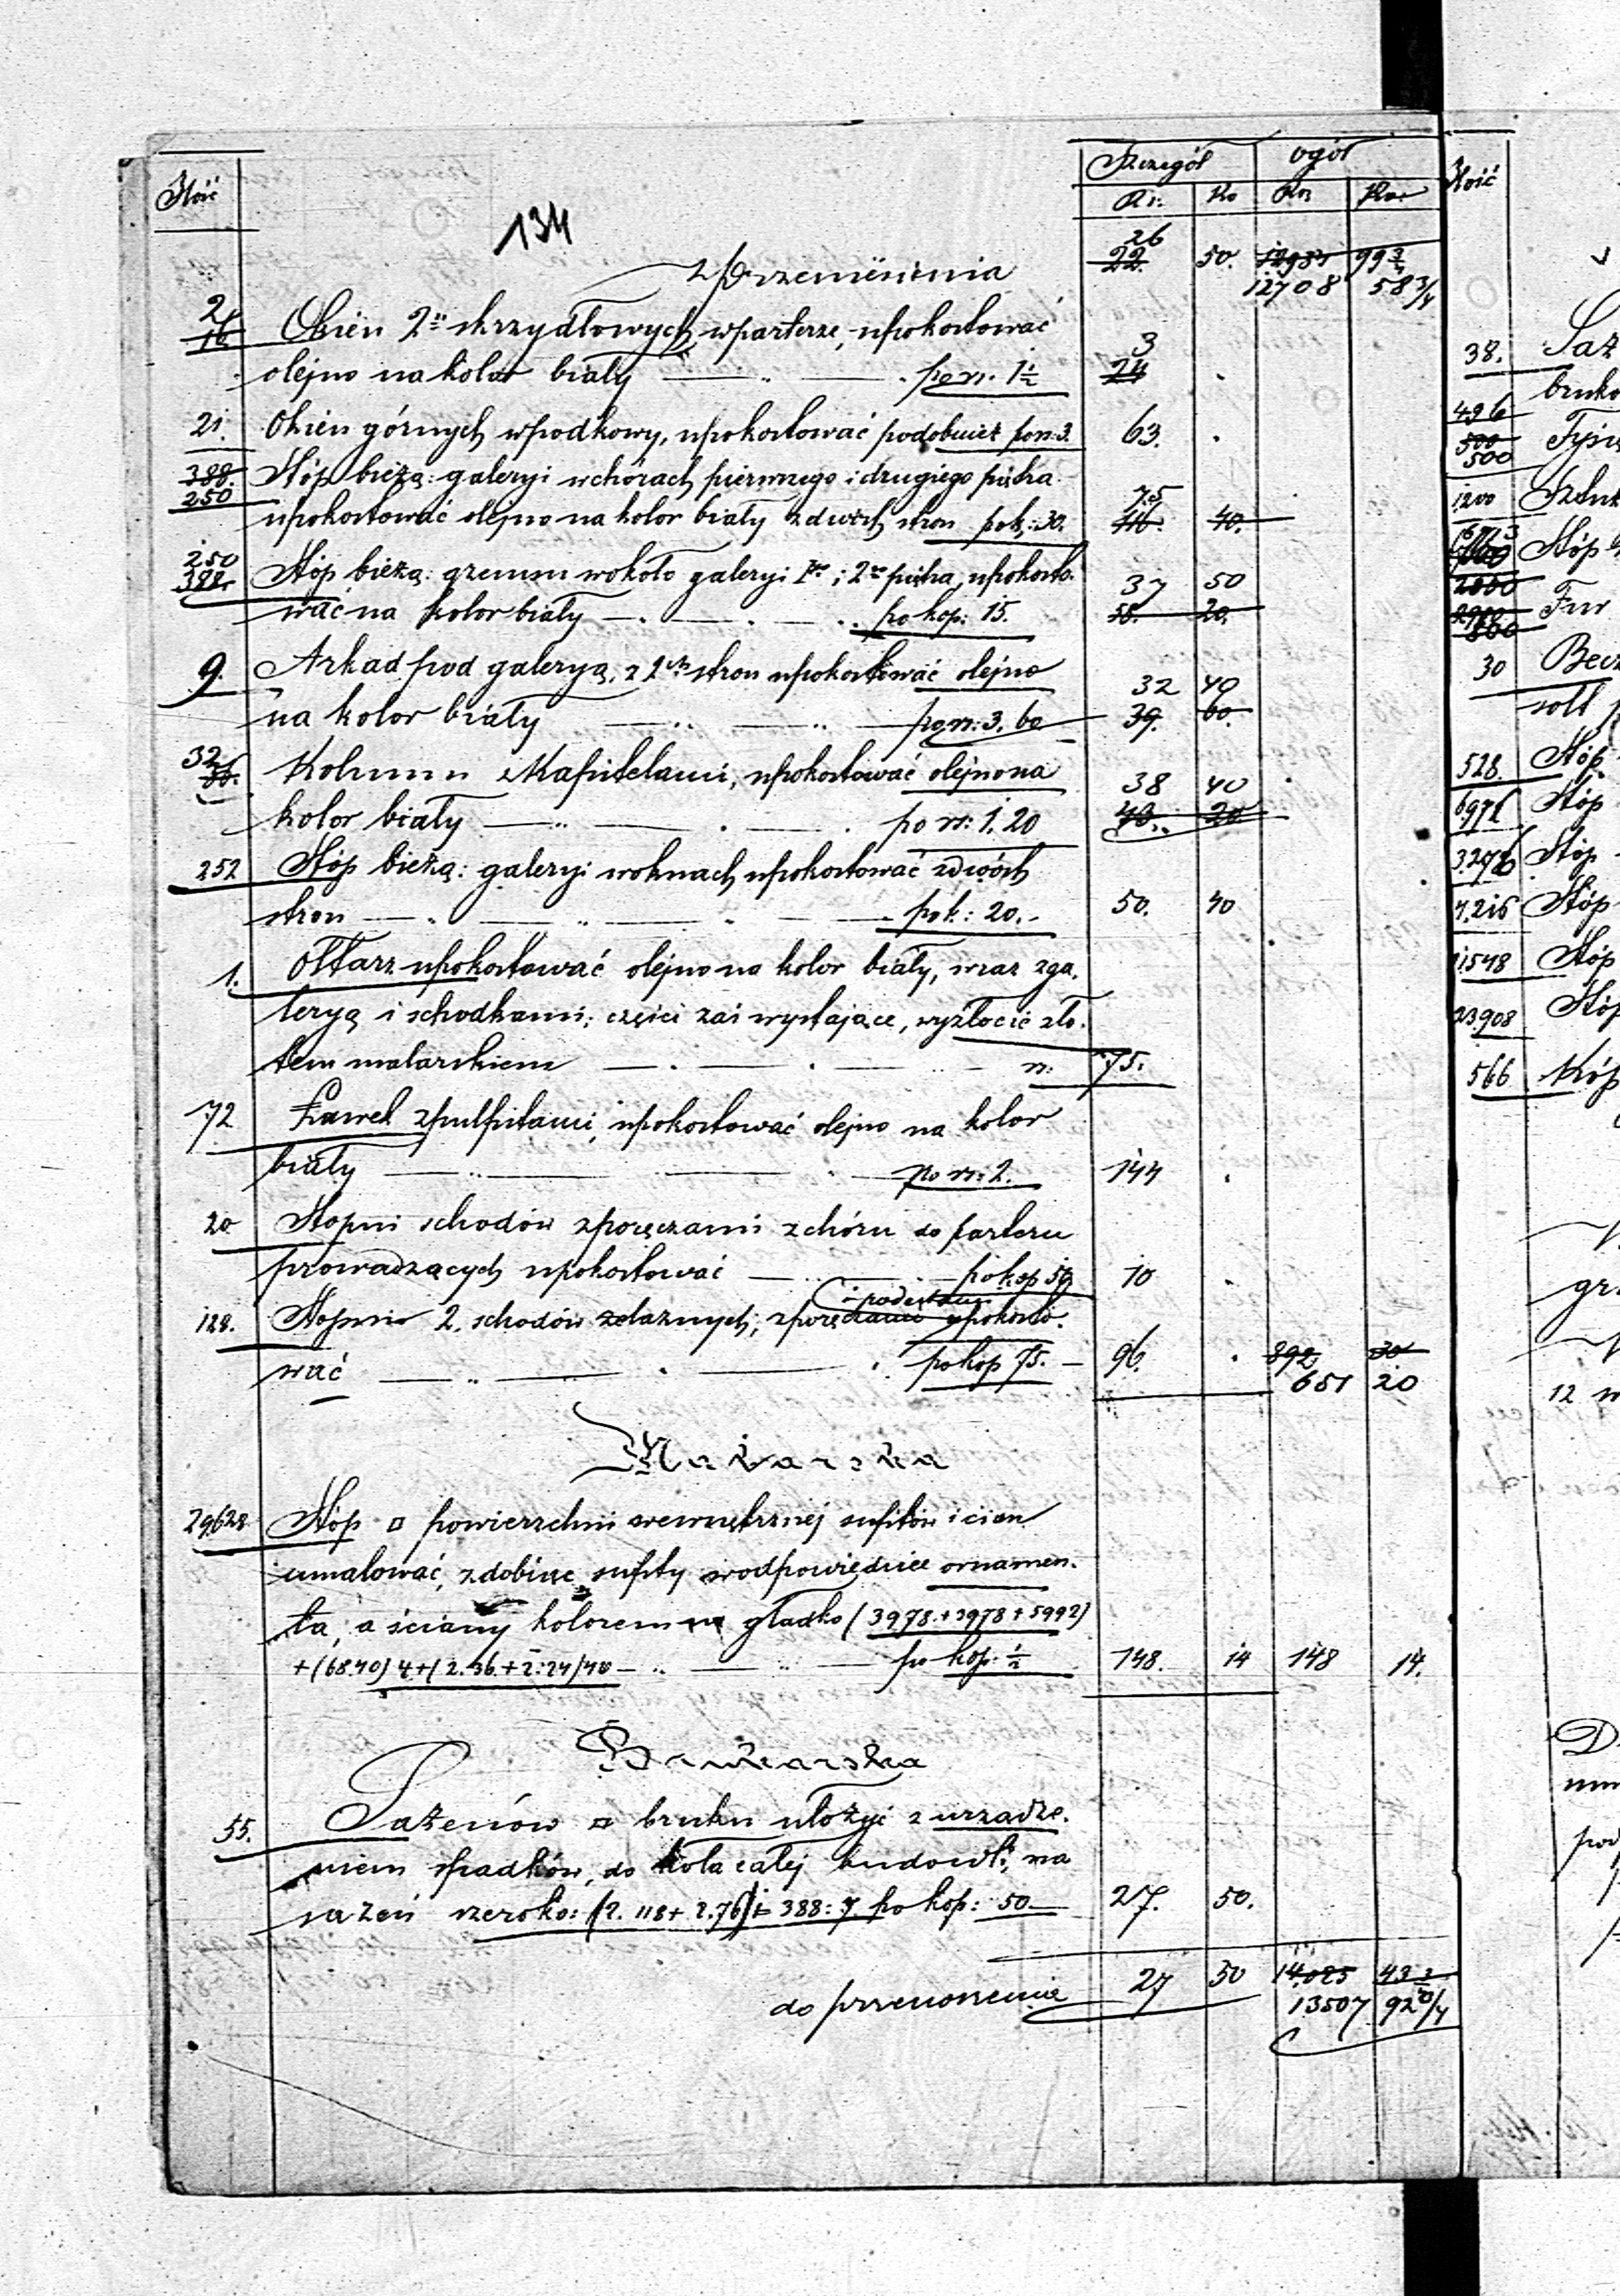 Ilość
Szczegół ogół
Rs: Ko Rs Ko:
134
z przeniesienia 26 22. 50. 12981 99 3/4
12708 58 3/4
2 16 Okien 2ch skrzydłowych, w parterze, upokostować
olejno na kolor biały — " — po rs. 1 1/2 3 24 .
21. Okien górnych w podkowy, upokostować podobnież po rs: 3. 63. .
388. 250 Stóp bieżą: galeryi w chórach pierwszego i drugiego piętra
upokostować olejno na kolor biały z dwóch stron po k: 30. 75 116. 40.
250 388. Stóp bieżą: gzemsu wokoło galeryi 1go i 2go piętra, upokosto-
wać na kolor biały — . — . — po kop: 15. 37 50 58. 20.
9. Arkad pod galeryą, z 2ch stron upokostować olejno
na kolor biały — " — " — po rs: 3. 60 32 40 39. 60.
32 Kolumn z Kapitelami, upokostować olejno na
kolor biały — " — . — . po rs: 1. 20 38 40 40. 20
252 Stóp bieżą: galeryi w oknach upokostować z dwóch
stron — " — " — " — po k: 20. – 50. 40
1. Ołtarz upokostować olejno na kolor biały, wraz z ga-
leryą i schodkami; części zaś wystające, wyzłocić zło-
tem malarskiem — . — . — " — rs: 75.
72 Ławek z pulpitami, upokostować olejno na kolor
biały — " — " — po rs: 2. 144 .
20 Stopni schodów z poręczami z chóru do parteru
prowadzących upokostować — " — po kop 50 10 .
i podestami
128. Stopni 2. schodów żelaznych, z poręczami upokosto-
wać — " — . — . po kop 75. – 96. . 892 30
651 20
Malarska
29628 Stóp □ powierzchni wewnętrznej sufitów i ścian
umalować, zdobiąc sufity w odpowiednie ornamen-
ta, a ściany kolorem gładko (3978. + 3978 + 5992)
+ (68.40) 4 + (2. 36. + 2. 24) 40 — " — " — po kop: 1/2 148. 14 148 14.
Brukarska
55. Sażenów □ bruku ułożyć z urządze-
niem spadków, do koła całej budowli, na
sażeń szeroko: (2. 118 + 2. 76) = 388 : 7 po kop: 50 — 27. 50.
do przenoszenia 27 50 14025 43 3/4
13507 92 3/4
Ilość
38. Saż
bruko
496 500 500
1200 Sztuk
Stóp
2850 800 Fur
30 Becz
528. Stóp
6976 Stóp
3278 Stóp
7.216 Stóp
11548 Stóp
23908 Stóp
566 Kóp
gr.
12